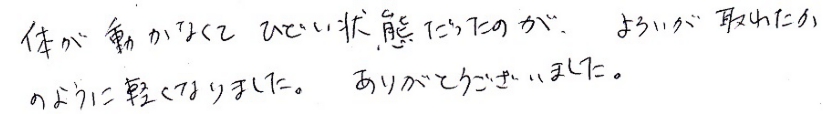 体が動かなくて ひどい状態だったのが、 よろいが取れたか
のように軽くなりました。 ありがとうございました。